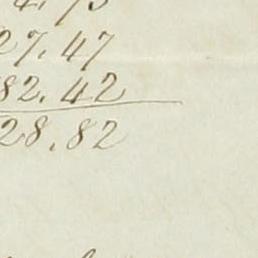 27.47
82.42
28.82